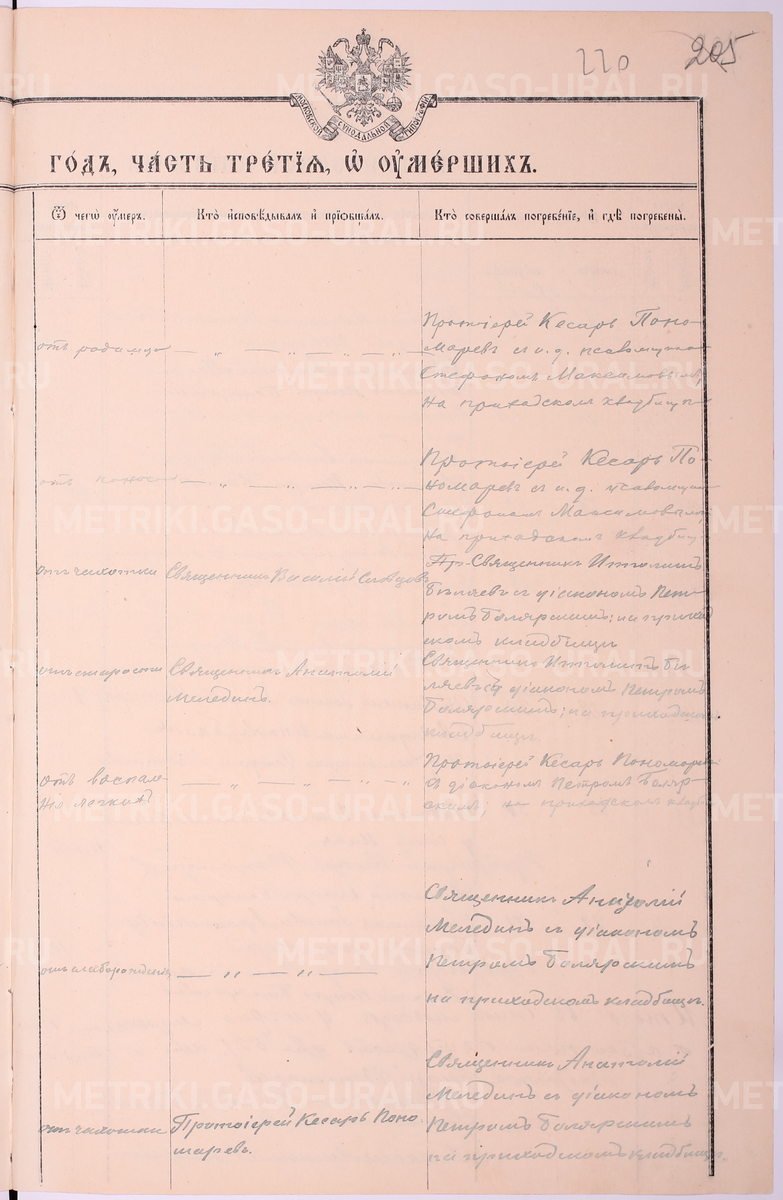 220 205
МОСКОВСКОЙ СѴНОДАЛЬНОЙ ТИПОГРАФІИ
ГО́ДЪ, ЧА́СТЬ ТРЕ́ТІѦ, Ѡ҆ ОУ҆МЕ́РШИХЪ.
Ѿ чегѡ̀ оу҆́меръ.
Кто̀ и҆сповѣ́дывалъ и҆ прїѡбща́лъ.
Кто̀ соверша́лъ погребе́нїе, и҆ гдѣ̀ погребены̀.
отъ родимца
Протоіерей Кесарь Поно-
маревъ съ и. д. псаломщика
Максимовымъ
на приходскомъ кладбищѣ
отъ поноса
Протоіерей Кесарь По-
номаревъ съ и. д. псаломщика
Максимовымъ
на приходскомъ кладбищѣ
отъ чахотки
Священникъ Василій Словцовъ
Священникъ Ипполитъ
Бѣляевъ съ діакономъ Пет-
ромъ Боляр­скимъ; на приход-
скомъ кладбищѣ
отъ старости
Священникъ Анатолій
Мелединъ.
Священникъ Ипполитъ Бѣ-
ляевъ съ діакономъ Петромъ
Болярскимъ; на приходскомъ
кладбищѣ.
отъ воспале-
нія легкихъ
Протоіерей Кесарь Пономаревъ
съ діакономъ Петромъ Боляр-
скимъ; на приходскомъ кладб.
отъ слаборожденія
Священникъ Анатолій
Мелединъ съ діакономъ
Петромъ Болярскимъ
на приходскомъ кладбищѣ.
отъ чахотки
Протоіерей Кесарь Поно-
маревъ.
Священникъ Анатолій
Мелединъ съ діакономъ
Петромъ Болярскимъ
на приходскомъ кладбищѣ.
METRIKI.GASO-URAL.RU